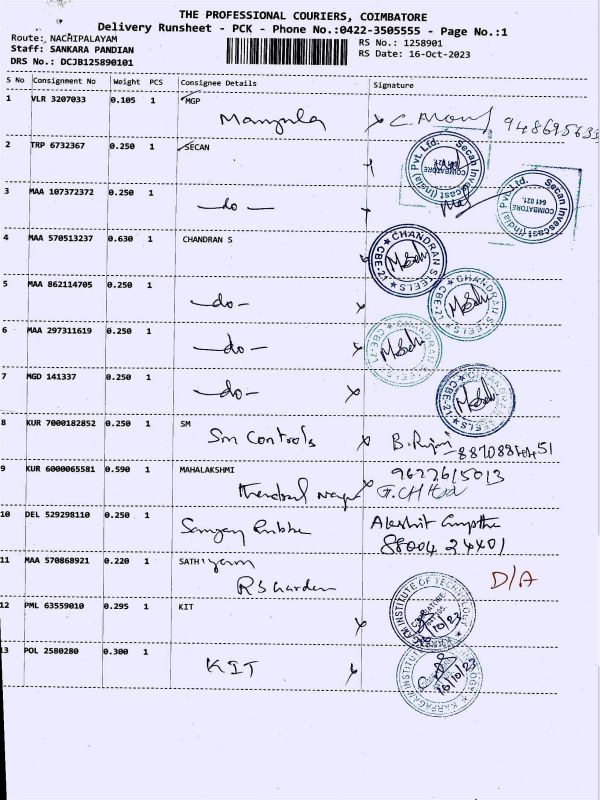 THE PROFESSIONAL COURIERS, COIMBATORE
Delivery Runsheet - PCK - Phone No.:0422-3505555 - Page No.:1
Route: NACHIPALAYAM RS No.: 1258901
Staff: SANKARA PANDIAN RS Date: 16-Oct-2023
DRS No.: DCJB125890101
S No Consignment No Weight PCS Consignee Details Signature
1 VLR 3207033 0.105 1 MGP
Manjula
2 TRP 6732367 0.250 1 SECAN
Secan Invescast (India) Pvt. Ltd. COIMBATORE 641 021.
3 MAA 107372372 0.250 1
-do-
Secan Invescast (India) Pvt. Ltd. COIMBATORE 641 021.
4 MAA 570513237 0.630 1 CHANDRAN S
CHANDRAN STEELS CBE-21
5 MAA 862114705 0.250 1
-do- CHANDRAN STEELS CBE-21
6 MAA 297311619 0.250 1
-do- CHANDRAN STEELS CBE-21
7 MGD 141337 0.250 1
-do- CHANDRAN STEELS CBE-21
8 KUR 7000182852 0.250 1 SM
Sm Controls
9 KUR 6000065581 0.590 1 MAHALAKSHMI
10 DEL 529298110 0.250 1
88004 24401
11 MAA 570868921 0.220 1 SATHiyam
RS Garden D/A
12 PML 63559010 0.295 1 KIT
KARPAGAM INSTITUTE OF TECHNOLOGY COIMBATORE
13 POL 2580280 0.300 1
KIT
KARPAGAM INSTITUTE OF TECHNOLOGY 16/10/23